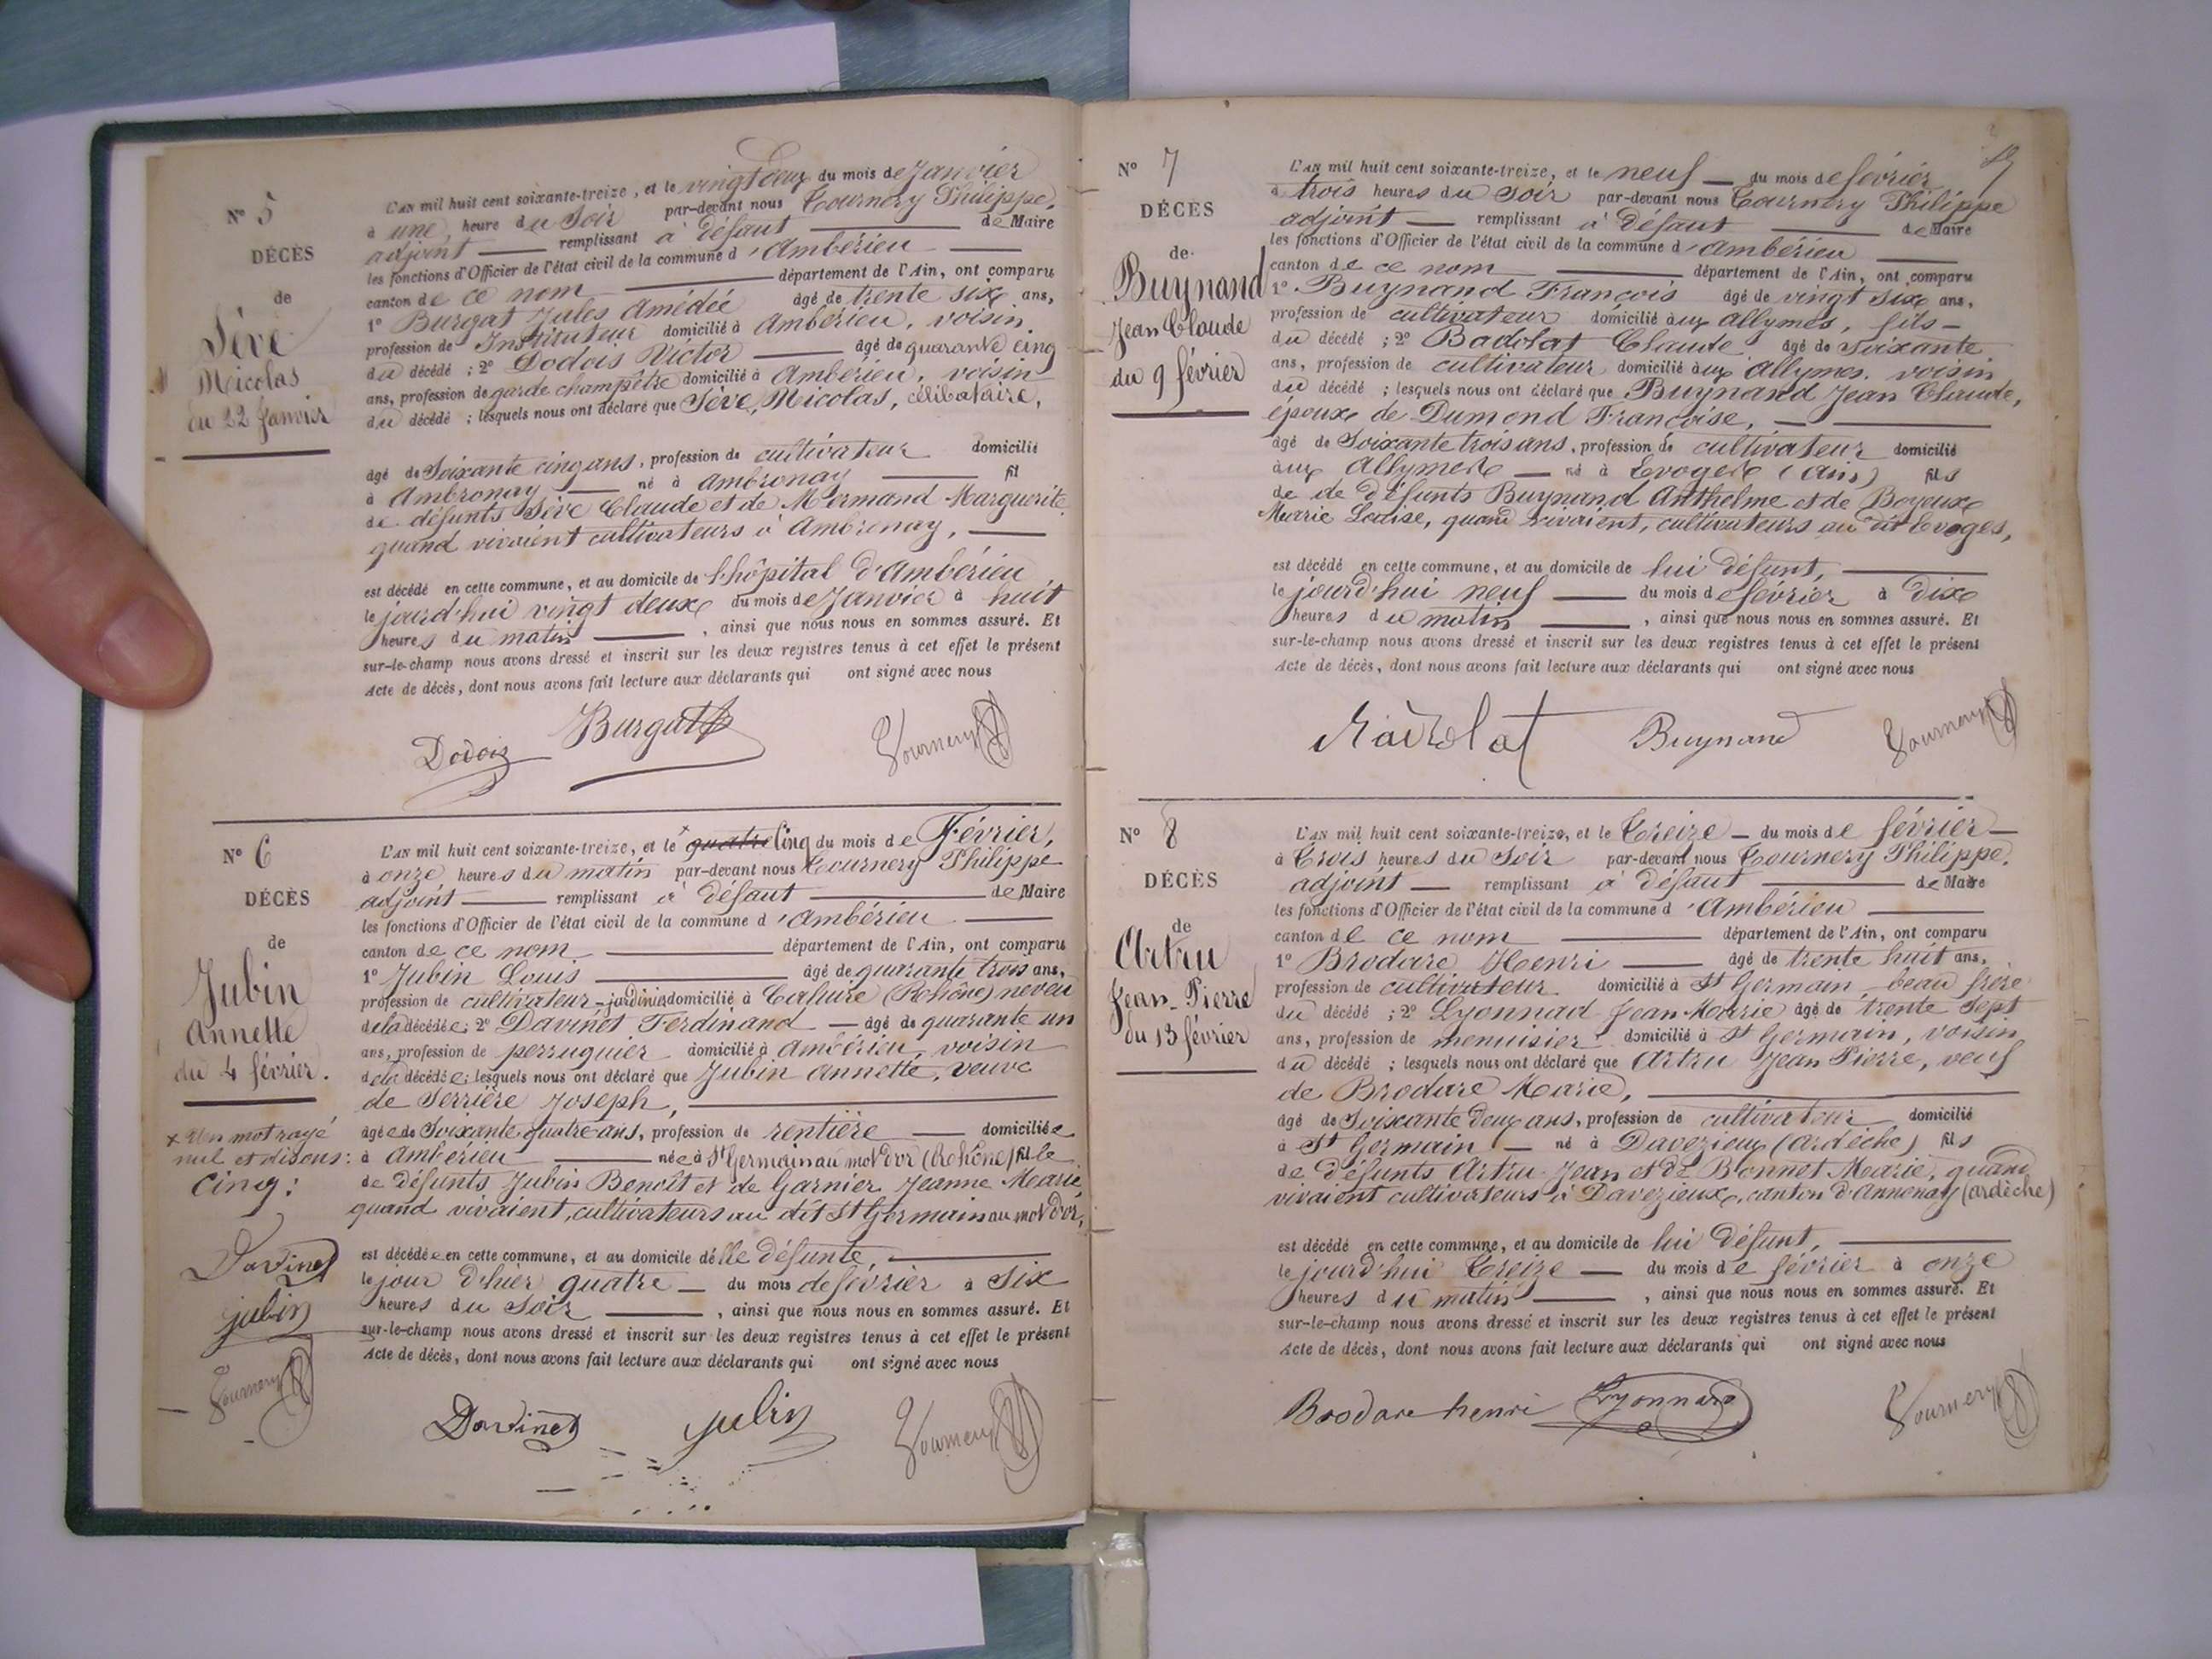 N° 5
DÉCÈS
de
Sève
Nicolas
du 22 Janvier
L'AN mil huit cent soixante-treize, et le vingt deux du mois de Janvier
à une heure du Soir par-devant nous Tournery Philippe,
adjoint remplissant à défaut de Maire
les fonctions d'Officier de l'état civil de la commune d'Ambérieu
canton de ce nom département de l'Ain, ont comparu
1° Burgat Jules Amédée âgé de trente six ans,
profession de Instituteur domicilié à Ambérieu, voisin
du décédé ; 2° Dodois Victor âgé de quarante cinq
ans, profession de garde champêtre domicilié à Ambérieu, voisin
du décédé ; lesquels nous ont déclaré que Sève, Nicolas, célibataire,
âgé de Soixante cinq ans, profession de cultivateur domicilié
à Ambronay né à Ambronay fil
de défunts Sève Claude et de Mermand Marguerite
quand vivaient cultivateurs à Ambronay,
est décédé en cette commune, et au domicile de l'hôpital d'Ambérieu
le jourd'hui vingt deux du mois de Janvier à huit
heures du matin , ainsi que nous nous en sommes assuré. Et
sur-le-champ nous avons dressé et inscrit sur les deux registres tenus à cet effet le présent
Acte de décès, dont nous avons fait lecture aux déclarants qui ont signé avec nous
Dodois Burgat Tournery
N° 6
DÉCÈS
de
Jubin
Annette
du 4 février.
x Un mot rayé
nul et disons:
Cinq:
Davinet
jubin
Tournery
L'AN mil huit cent soixante-treize, et le x quatre Cinq du mois de Février,
à onze heures du matin par-devant nous Tournery Philippe
adjoint remplissant à défaut de Maire
les fonctions d'Officier de l'état civil de la commune d'Ambérieu
canton de ce nom département de l'Ain, ont comparu
1° Jubin Louis âgé de quarante trois ans,
profession de cultivateur-jardinier domicilié à Caluire (Rhône) neveu
de la décédée; 2° Davinet Ferdinand âgé de quarante un
ans, profession de perruquier domicilié à Ambérieu, voisin
de la décédée; lesquels nous ont déclaré que Jubin Annette, veuve
de Serrière Joseph,
âgée de Soixante quatre ans, profession de rentière domiciliée
à Ambérieu née à St Germain au mot d'or (Rhône) fille
de défunts Jubin Benoît et de Garnier Jeanne Marie,
quand vivaient, cultivateurs au dit St Germain au mot d'or,
est décédée en cette commune, et au domicile d'elle défunte,
le jour d'hier quatre du mois de février à Six
heures du Soir , ainsi que nous nous en sommes assuré. Et
sur-le-champ nous avons dressé et inscrit sur les deux registres tenus à cet effet le présent
Acte de décès, dont nous avons fait lecture aux déclarants qui ont signé avec nous
Davinet jubin Tournery
N° 7
DÉCÈS
de
Buynand
Jean Claude
du 9 février
L'AN mil huit cent soixante-treize, et le neuf du mois de février
à trois heures du soir par-devant nous Tournery Philippe
adjoint remplissant à défaut de Maire
les fonctions d'Officier de l'état civil de la commune d'Ambérieu
canton de ce nom département de l'Ain, ont comparu
1° Buynand François âgé de vingt six ans,
profession de cultivateur domicilié aux Allymes, fils
du décédé ; 2° Badolat Claude âgé de soixante
ans, profession de cultivateur domicilié aux Allymes, voisin
du décédé ; lesquels nous ont déclaré que Buynand Jean Claude,
époux de Dumond Françoise,
âgé de Soixante trois ans, profession de cultivateur domicilié
aux Allymes né à Evoges (Ain) fils
de de défunts Buynand Anthelme et de Boyeux
Marie Louise, quand vivaient, cultivateurs au dit Evoges,
est décédé en cette commune, et au domicile de lui défunt,
le jourd'hui neuf du mois de février à Dix
heures du matin , ainsi que nous nous en sommes assuré. Et
sur-le-champ nous avons dressé et inscrit sur les deux registres tenus à cet effet le présent
Acte de décès, dont nous avons fait lecture aux déclarants qui ont signé avec nous
Buynand Tournery
N° 8
DÉCÈS
de
Artru
Jean-Pierre
du 13 février
L'AN mil huit cent soixante-treize, et le Treize du mois de février
à Trois heures du Soir par-devant nous Tournery Philippe,
adjoint remplissant à défaut de Maire
les fonctions d'Officier de l'état civil de la commune d'Ambérieu
canton de ce nom département de l'Ain, ont comparu
1° Brodare Henri âgé de trente huit ans,
profession de cultivateur domicilié à St Germain beau frère
du décédé ; 2° Lyonnad Jean Marie âgé de trente Sept
ans, profession de menuisier domicilié à St Germain, voisin
du décédé ; lesquels nous ont déclaré que Artru Jean Pierre, veuf
de Brodare Marie,
âgé de Soixante Deux ans, profession de cultivateur domicilié
à St Germain né à Davezieux (Ardèche) fils
de défunts Artru Jean et de Bonnet Marie, quand
vivaient cultivateurs à Davezieux, canton d'Annonay (ardèche)
est décédé en cette commune, et au domicile de lui défunt,
le jourd'hui Treize du mois de février à onze
heures du matin , ainsi que nous nous en sommes assuré. Et
sur-le-champ nous avons dressé et inscrit sur les deux registres tenus à cet effet le présent
Acte de décès, dont nous avons fait lecture aux déclarants qui ont signé avec nous
Brodare henri Lyonnard Tournery